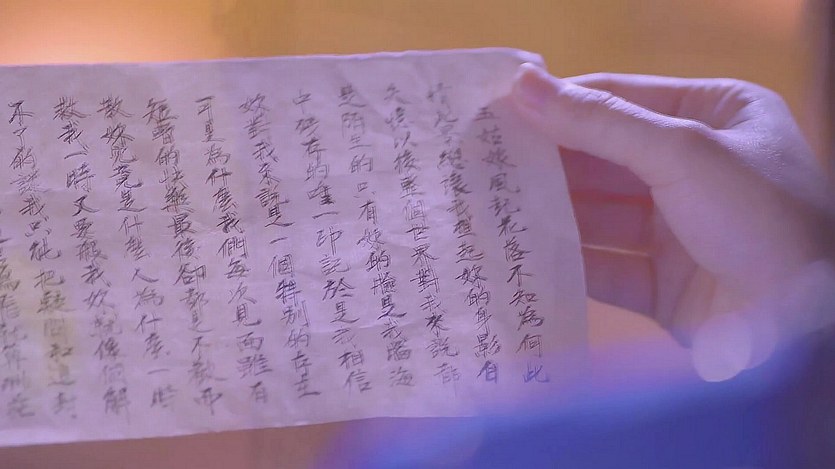 五姑娘風起花落不知為何此
情此景總讓我想起妳的身影自
失憶以後整個世界對我來說都
是陌生的只有妳的臉是我腦海
中殘存的唯一印記於是我相信
妳對我來說是一個特別的存在
可是為什麼我們每次見面雖有
短暫的快樂最後卻都是不歡而
散妳究竟是什麼人為什麼一時
救我一時又要殺我妳就像個解
不了的謎我只能把疑問和思